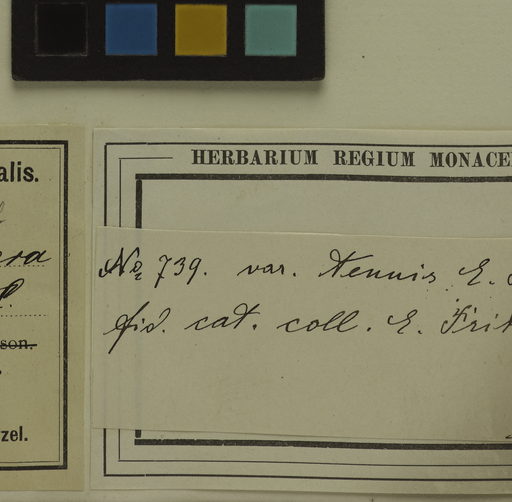 alis.
era
son.
zel.
HERBARIUM REGIUM MONACE
No 739. var. tenuis E.
fid. cat. coll. E. Frit